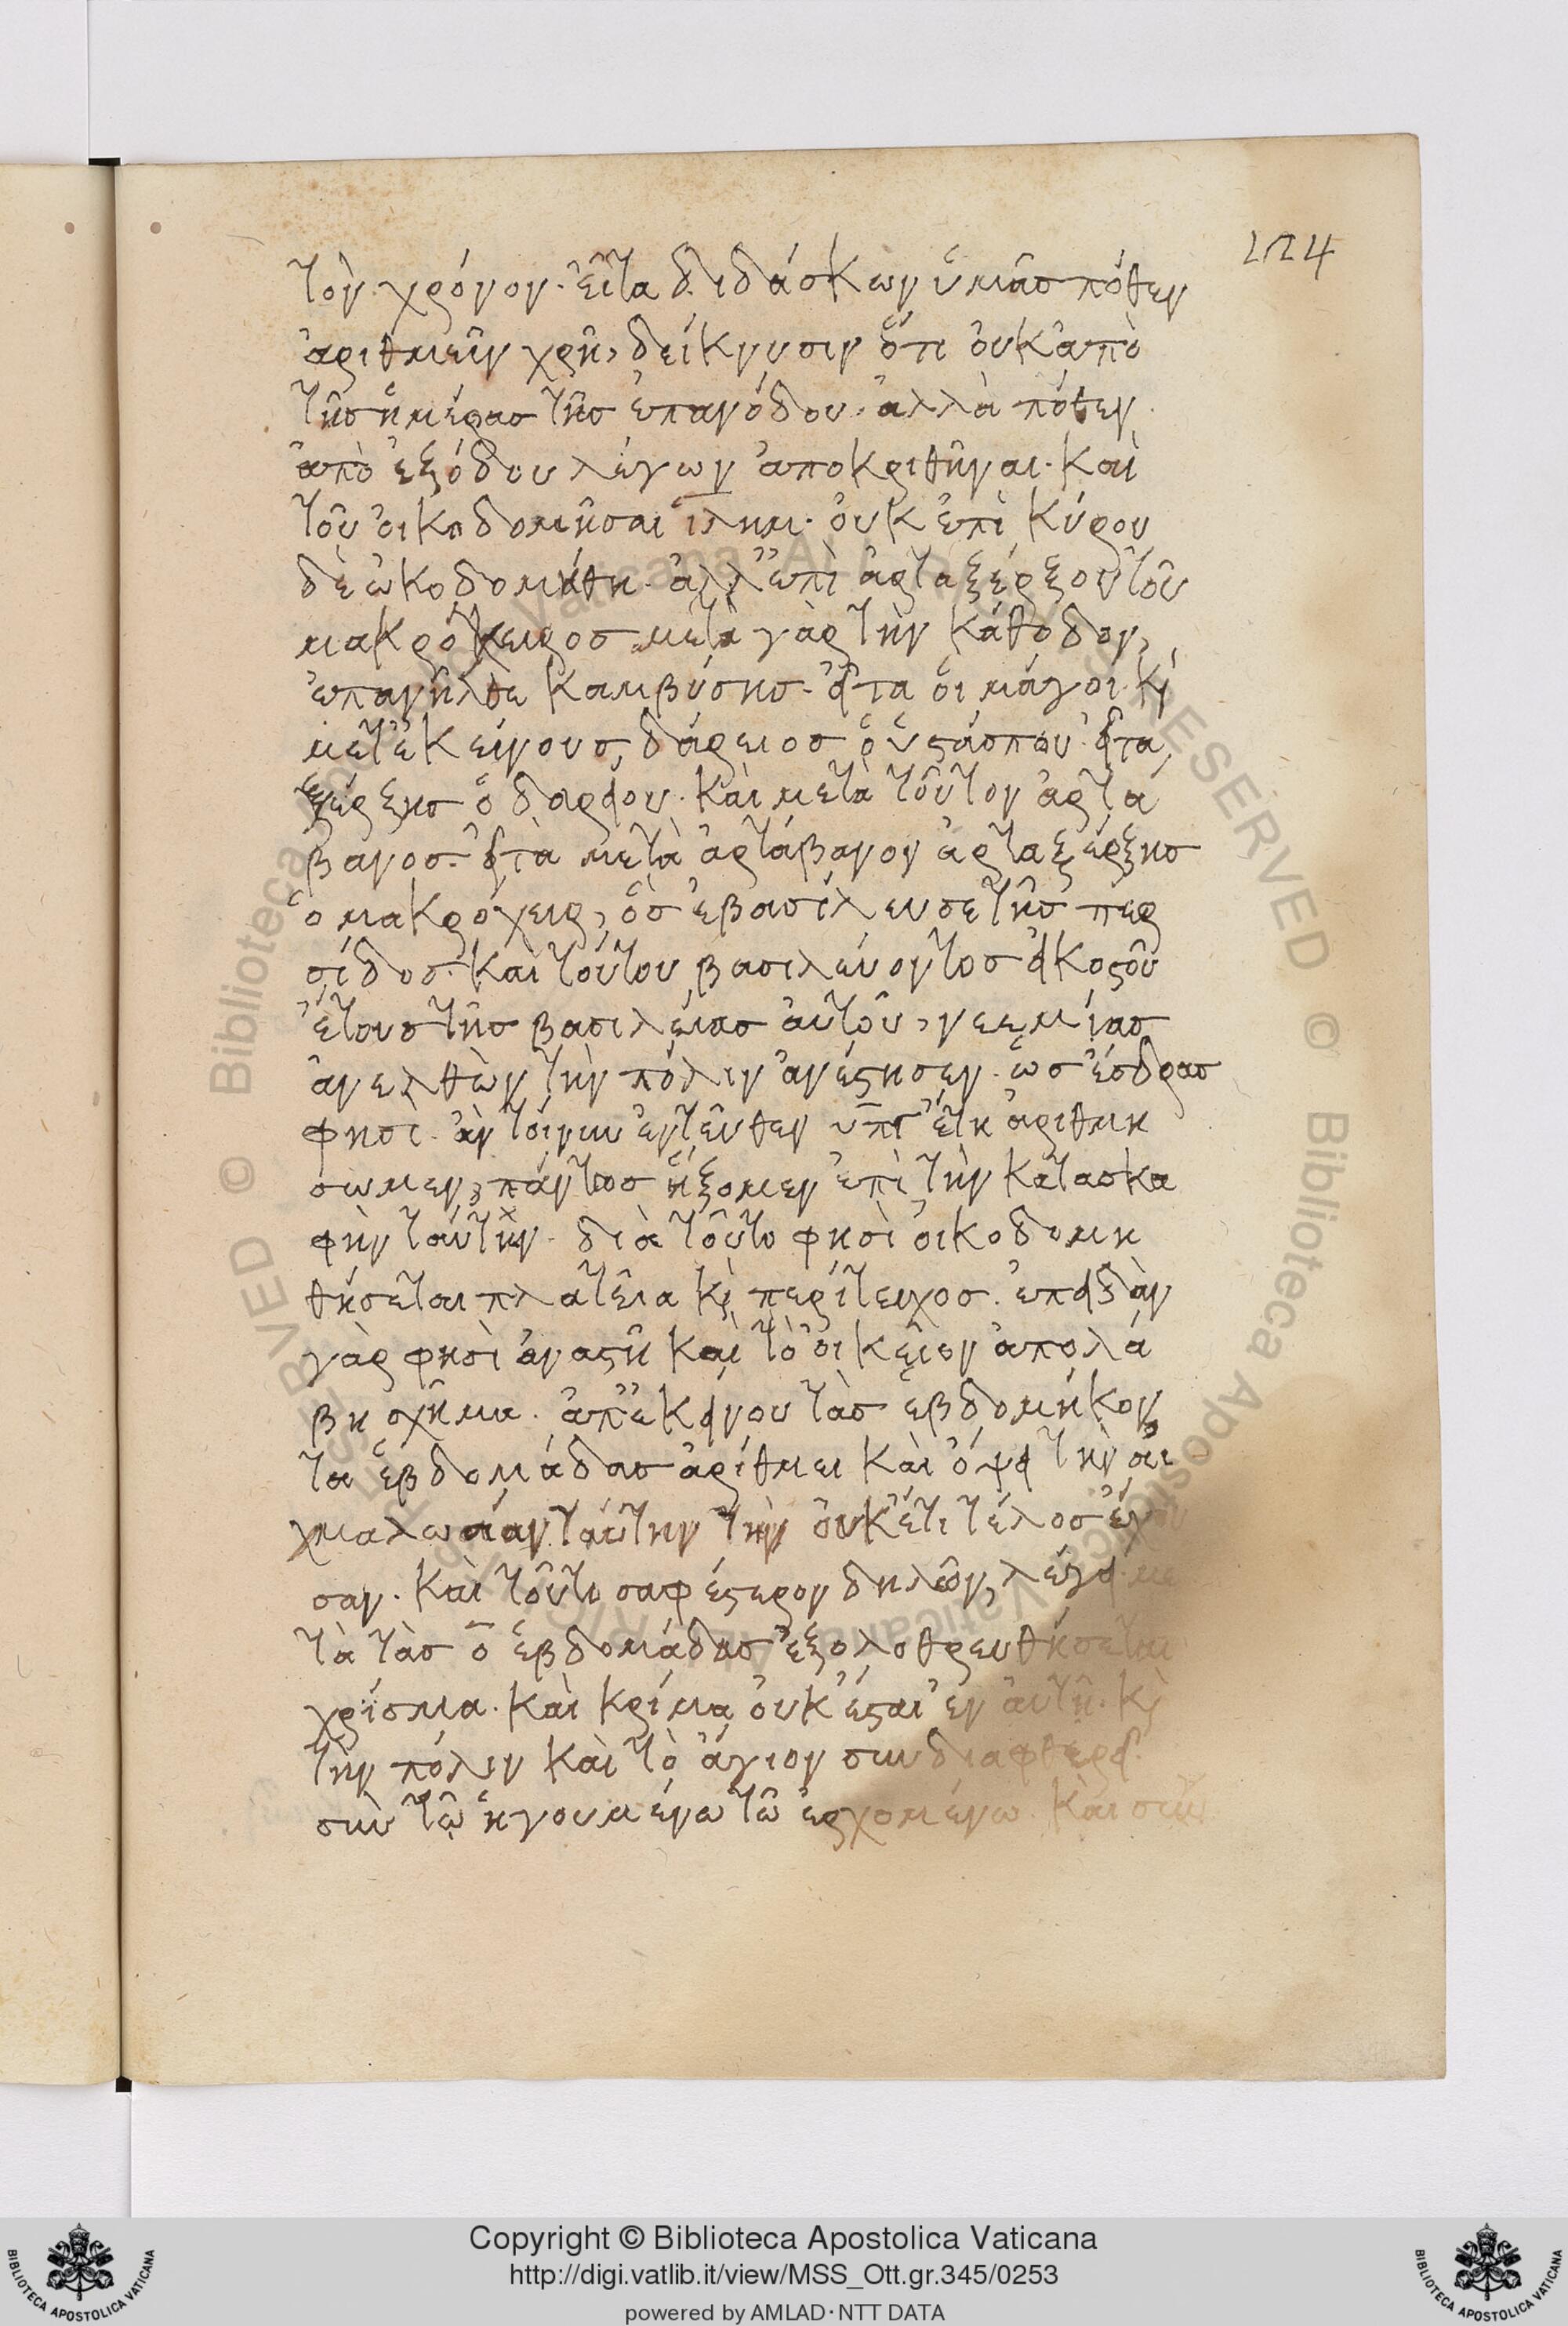 124
τὸν χρόνον· εἶτα διδάσκων ὑμᾶς πόθεν
ἀριθμεῖν χρὴ, δείκνυσιν ὅτι οὐκ ἀπὸ
τῆς ἡμέρας τῆς ἐπανόδου· ἀλλὰ πόθεν
ἀπὸ ἐξόδου λέγων ἀποκριθῆναι· καὶ
τοῦ οἰκοδομῆσαι ἱλημ· οὐκ ἐπὶ κύρου
δὲ ὠκοδομήθη· ἀλλ' ἐπὶ ἀρταξέρξου τοῦ
μακρόχειρος μετὰ γὰρ τὴν κάθοδον,
ἐπανῆλθε καμβύσης· εἶτα οἱ μάγοι· κὶ
μετ' ἐκείνους, δάρειος ὁ ὑστάσπου· εἶτα,
ξέρξης ὁ δαρείου· καὶ μετὰ τοῦτον ἀρτά
βανος· εἶτα μετὰ ἀρτάβανον ἀρταξέρξης
ὁ μακρόχειρ, ὃς ἐβασίλευσε τῆς περ
σίδος· καὶ τούτου βασιλεύοντος εἰκοστοῦ
ἔτους τῆς βασιλείας αὐτοῦ, νεεμίας
ἀνελθὼν τὴν πόλιν ἀνέστησεν· ὡς ἔσδρας
φησὶ· ἂν τοίνυν ἐντεῦθεν υπγ ἔτη ἀριθμη
σωμεν, πάντως ἥξομεν ἐπὶ τὴν κατασκα
φὴν ταύτην· διὰ τοῦτο φησὶ οἰκοδομη
θήσεται πλατεῖα κὶ περίτειχος· ἐπειδὰν
γὰρ φησὶ ἀναστῆ καὶ τὸ οἰκεῖον ἀπολά
βη σχῆμα· ἀπ' ἐκείνου τὰς ἑβδομήκον
τα ἑβδομάδας ἀρίθμει καὶ ὄψει τὴν αἰ
χμαλωσίαν ταύτην τὴν οὐκέτι τέλος ἔχου
σαν· καὶ τοῦτο σαφέστερον δηλῶν, λέγει με
τὰ τὰς ο ἑβδομάδας ἐξολοθρευθήσεται
χρίσμα· καὶ κρίμα οὐκ ἔσται ἐν αὐτῆ· κὶ
τὴν πόλιν καὶ τὸ ἅγιον συνδιαφθερεῖ·
σὺν τῶ ἡγουμένω τῶ ἐρχομένω· καὶ σὺν
Copyright © Biblioteca Apostolica Vaticana
http://digi.vatlib.it/view/MSS_Ott.gr.345/0253
powered by AMLAD·NTT DATA